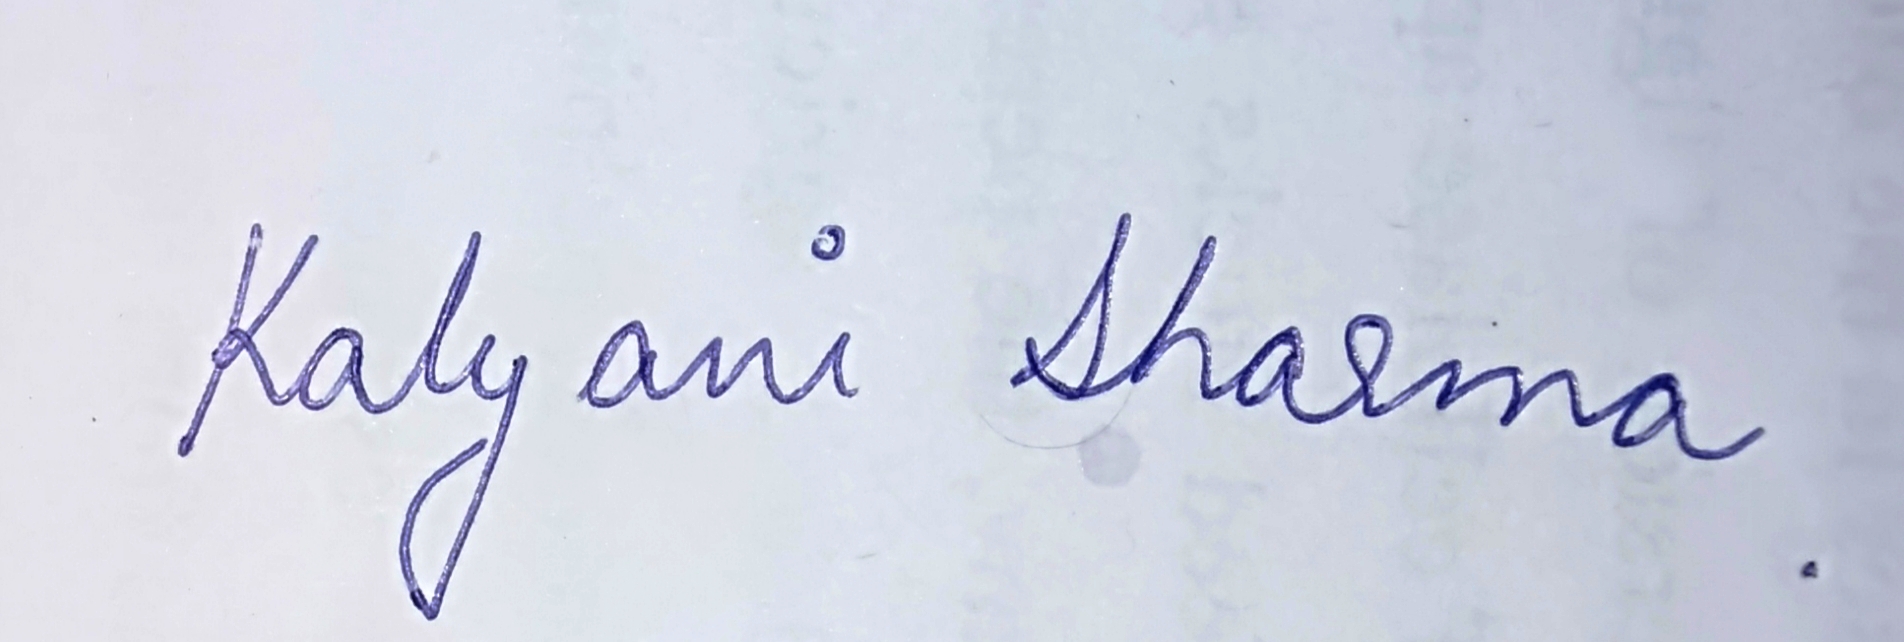 Kalyani Sharma